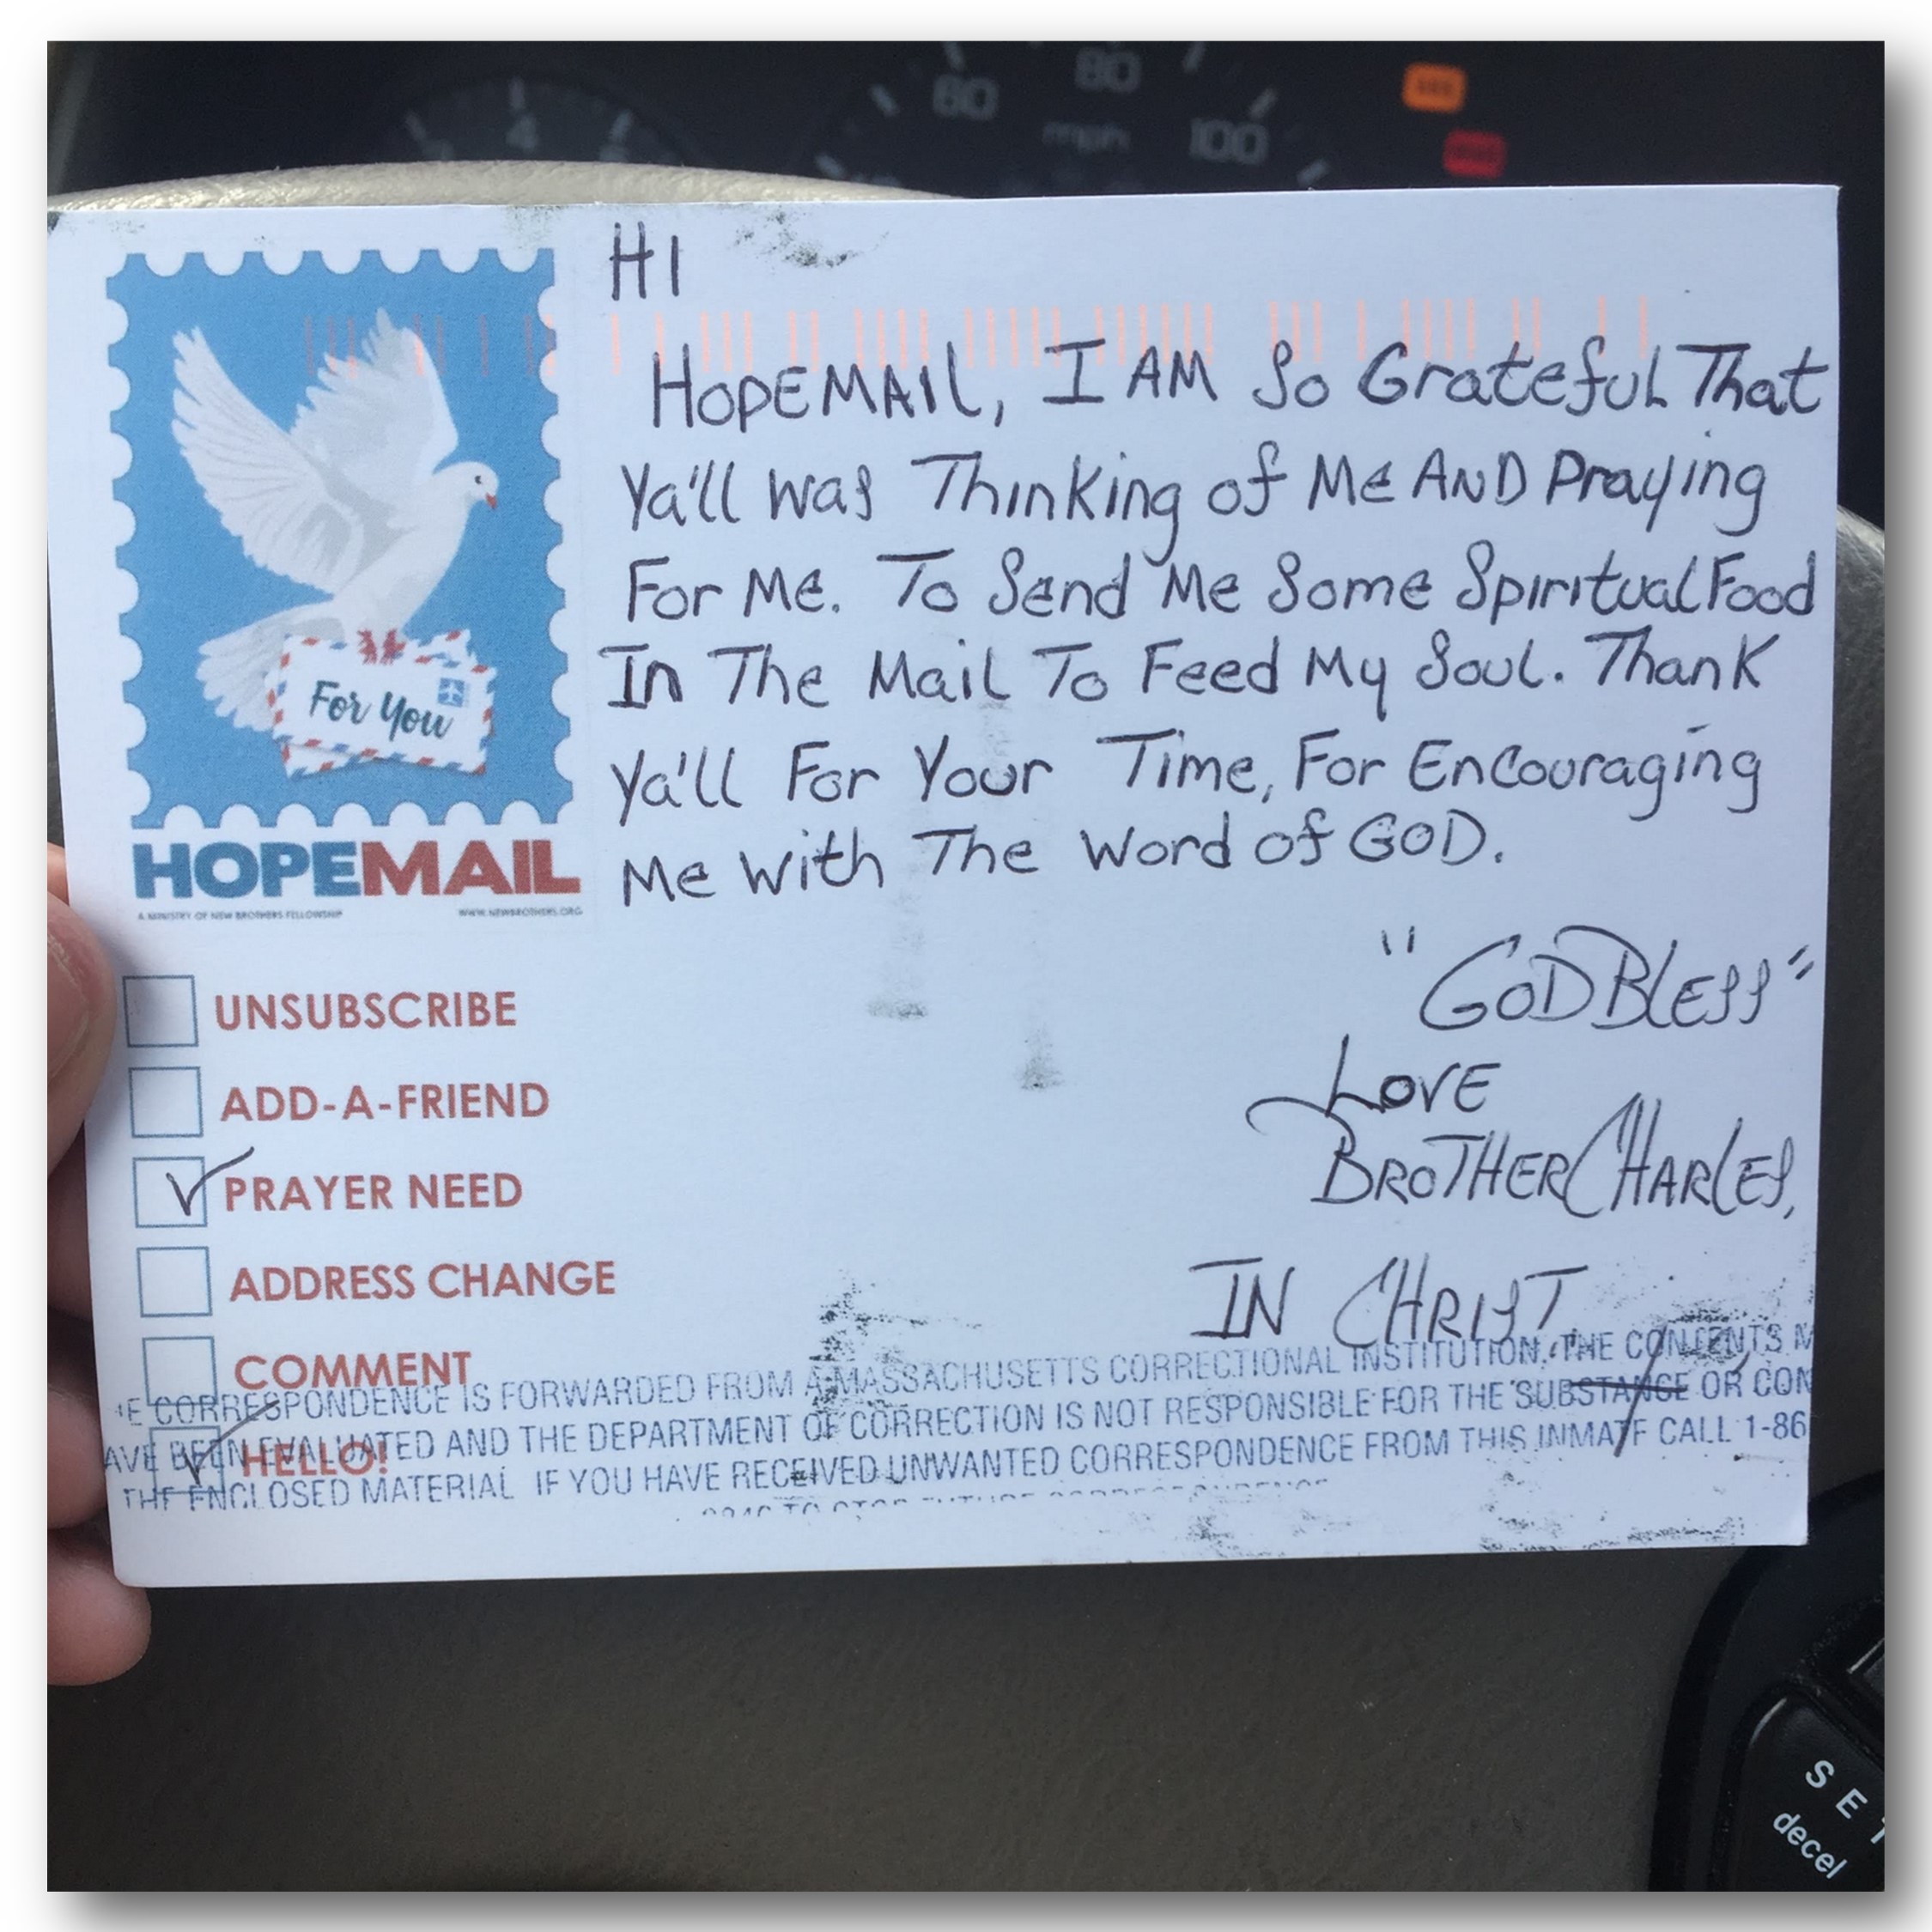 60
80
100
mph
4
HI
HOPEMAIL, I AM So Grateful That
Ya'll was Thinking of Me AND Praying
For Me. To Send Me Some Spiritual Food
In The Mail To Feed My Soul. Thank
Ya'll For Your Time, For Encouraging
Me With The Word of GOD.
"GOD BLESS"
LOVE
BROTHER CHARLES,
IN CHRIST
For You
HOPEMAIL
A MINISTRY OF NEW BROTHERS FELLOWSHIP WWW.NEWBROTHERS.ORG
UNSUBSCRIBE
ADD-A-FRIEND
PRAYER NEED
ADDRESS CHANGE
COMMENT
HELLO!
CORRESPONDENCE IS FORWARDED FROM A MASSACHUSETTS CORRECTIONAL INSTITUTION. THE CONTENTS M
AVE BEEN EVALUATED AND THE DEPARTMENT OF CORRECTION IS NOT RESPONSIBLE FOR THE SUBSTANCE OR CON
THE ENCLOSED MATERIAL IF YOU HAVE RECEIVED UNWANTED CORRESPONDENCE FROM THIS INMATE CALL 1-86
TO STOP FUTURE CORRESPONDENCE
SET
decel